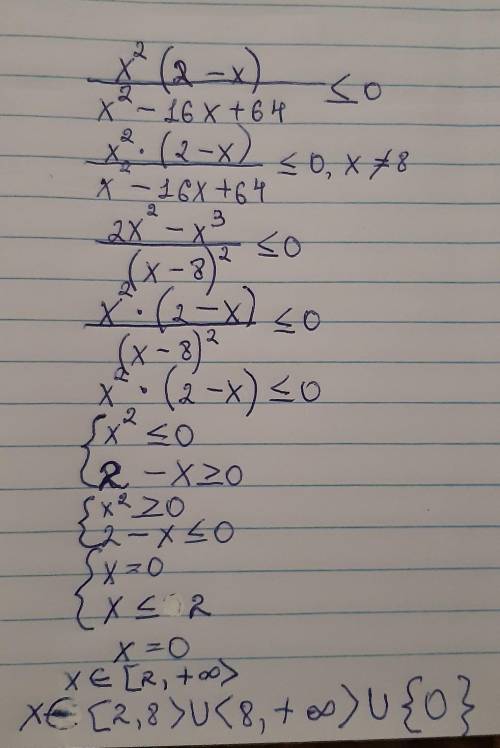 x²(2-x)/(x²-16x+64) ≤ 0
x²·(2-x)/(x²-16x+64) ≤ 0, x≠8
(2x²-x³)/(x-8)² ≤ 0
x²·(2-x)/(x-8)² ≤ 0
x²·(2-x) ≤ 0
{x² ≤ 0
2-x ≥ 0
{x² ≥ 0
2-x ≤ 0
{x=0
x ≤ 2
x=0
x∈[2,+∞>
x∈[2,8>∪<8,+∞>∪{0}